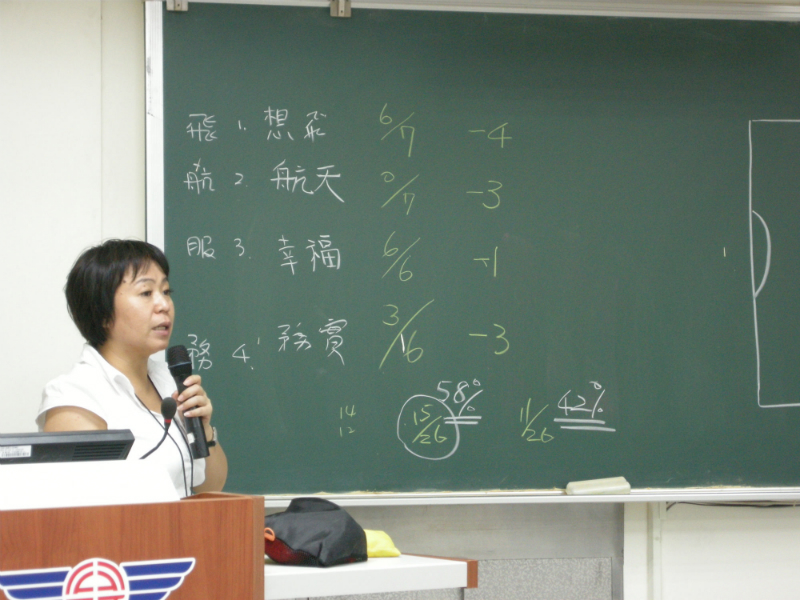 飛 1. 想飛 6/7 -4
航 2. 航天 0/7 -3
服 3. 幸福 6/6 +1
務 4. 務實 3/6 -3
58%
42%
14
15/26
11/26
12